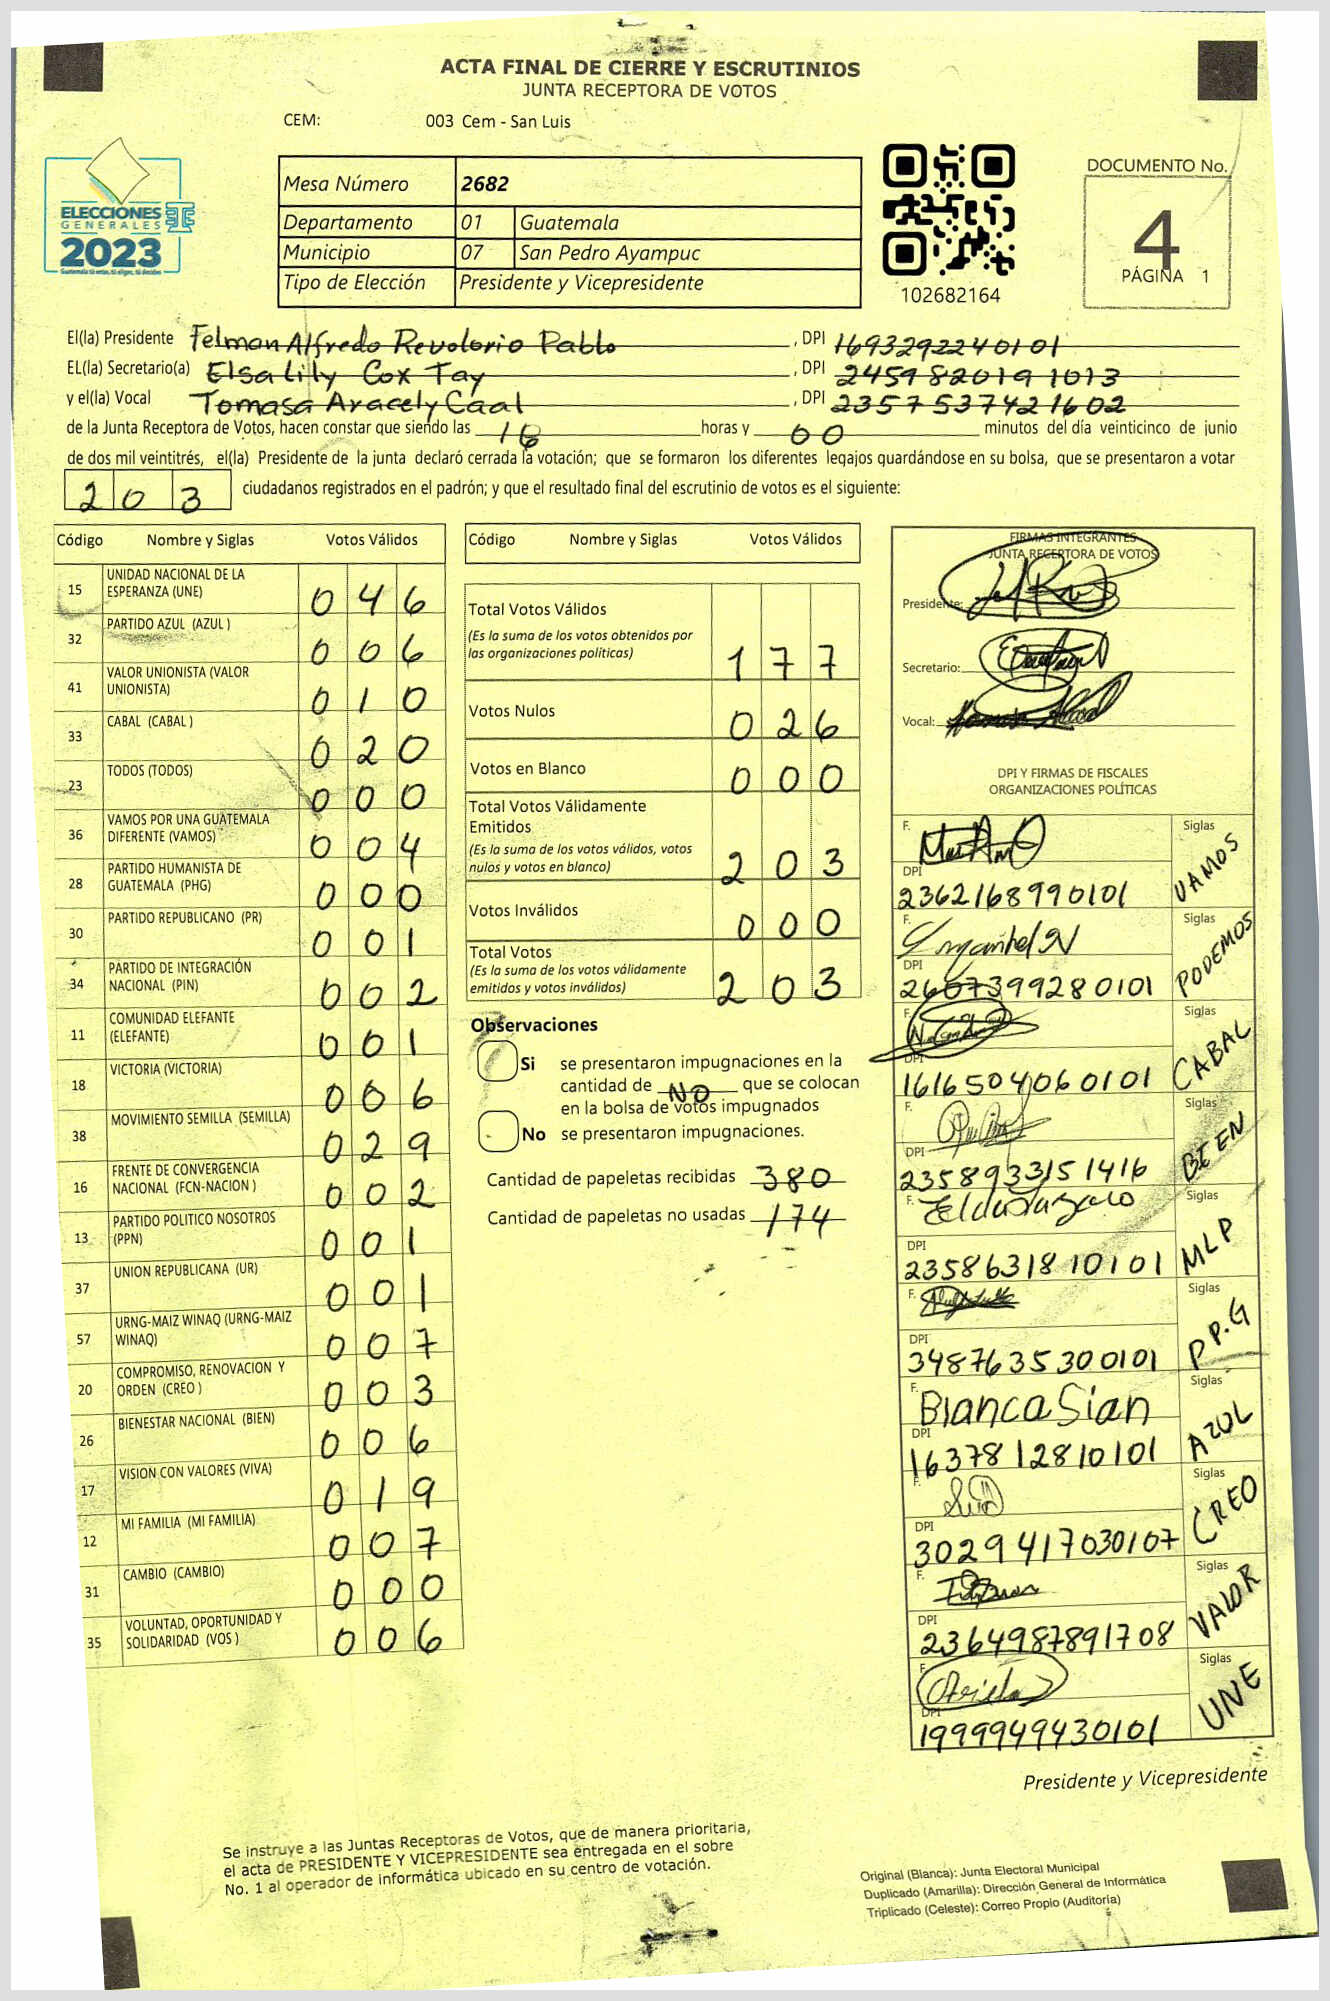 ACTA FINAL DE CIERRE Y ESCRUTINIOS
JUNTA RECEPTORA DE VOTOS
CEM: 003 Cem - San Luis
ELECCIONES
GENERALES
2023
Guatemala tú votas, tú eliges, tú decides
Mesa Número 2682
Departamento 01 Guatemala
Municipio 07 San Pedro Ayampuc
Tipo de Elección Presidente y Vicepresidente
102682164
DOCUMENTO No.
4
PÁGINA 1
El(la) Presidente Felman Alfredo Revolorio Pablo, DPI 1693292240101
EL(la) Secretario(a) Elsa Lily Cox Tay, DPI 2459820191013
y el(la) Vocal Tomasa Aracely Caal, DPI 2357537421602
de la Junta Receptora de Votos, hacen constar que siendo las 16 horas y 00 minutos del día veinticinco de junio
de dos mil veintitrés, el(la) Presidente de la junta declaró cerrada la votación; que se formaron los diferentes legajos quardándose en su bolsa, que se presentaron a votar
203 ciudadanos registrados en el padrón; y que el resultado final del escrutinio de votos es el siguiente:
Código Nombre y Siglas Votos Válidos
15 UNIDAD NACIONAL DE LA
ESPERANZA (UNE) 046
32 PARTIDO AZUL (AZUL ) 006
41 VALOR UNIONISTA (VALOR
UNIONISTA) 010
33 CABAL (CABAL ) 020
23 TODOS (TODOS) 000
36 VAMOS POR UNA GUATEMALA
DIFERENTE (VAMOS) 004
28 PARTIDO HUMANISTA DE
GUATEMALA (PHG) 000
30 PARTIDO REPUBLICANO (PR) 001
34 PARTIDO DE INTEGRACIÓN
NACIONAL (PIN) 002
11 COMUNIDAD ELEFANTE
(ELEFANTE) 001
18 VICTORIA (VICTORIA) 006
38 MOVIMIENTO SEMILLA (SEMILLA) 029
16 FRENTE DE CONVERGENCIA
NACIONAL (FCN-NACION ) 002
13 PARTIDO POLITICO NOSOTROS
(PPN) 001
37 UNION REPUBLICANA (UR) 001
57 URNG-MAIZ WINAQ (URNG-MAIZ
WINAQ) 007
20 COMPROMISO, RENOVACION Y
ORDEN (CREO ) 003
26 BIENESTAR NACIONAL (BIEN) 006
17 VISION CON VALORES (VIVA) 019
12 MI FAMILIA (MI FAMILIA) 007
31 CAMBIO (CAMBIO) 000
35 VOLUNTAD, OPORTUNIDAD Y
SOLIDARIDAD (VOS ) 006
Código Nombre y Siglas Votos Válidos
Total Votos Válidos
(Es la suma de los votos obtenidos por
las organizaciones políticas) 177
Votos Nulos 026
Votos en Blanco 000
Total Votos Válidamente
Emitidos
(Es la suma de los votos válidos, votos
nulos y votos en blanco) 203
Votos Inválidos 000
Total Votos
(Es la suma de los votos válidamente
emitidos y votos inválidos) 203
Observaciones
Si se presentaron impugnaciones en la
cantidad de NO que se colocan
en la bolsa de votos impugnados
No se presentaron impugnaciones.
Cantidad de papeletas recibidas 380
Cantidad de papeletas no usadas 174
FIRMAS INTEGRANTES
JUNTA RECEPTORA DE VOTOS
Presidente:
Secretario:
Vocal:
DPI Y FIRMAS DE FISCALES
ORGANIZACIONES POLÍTICAS
F. Siglas
DPI
2362168990101 VAMOS
F. Siglas
DPI
2607399280101 PODEMOS
F. Siglas
DPI
1616504060101 CABAL
F. Siglas
DPI
2358933151416 BIEN
F. Siglas
DPI
2358631810101 MLP
F. Siglas
DPI
3487635300101 P.P.G
F. Blanca Sian Siglas
DPI
1637812810101 AZUL
F. Siglas
DPI
3029417030107 CREO
F. Siglas
DPI
2364987891708 VALOR
F. Siglas
DPI
1999949430101 UNE
Presidente y Vicepresidente
Se instruye a las Juntas Receptoras de Votos, que de manera prioritaria,
el acta de PRESIDENTE Y VICEPRESIDENTE sea entregada en el sobre
No. 1 al operador de informática ubicado en su centro de votación.
Original (Blanca): Junta Electoral Municipal
Duplicado (Amarilla): Dirección General de Informática
Triplicado (Celeste): Correo Propio (Auditoría)